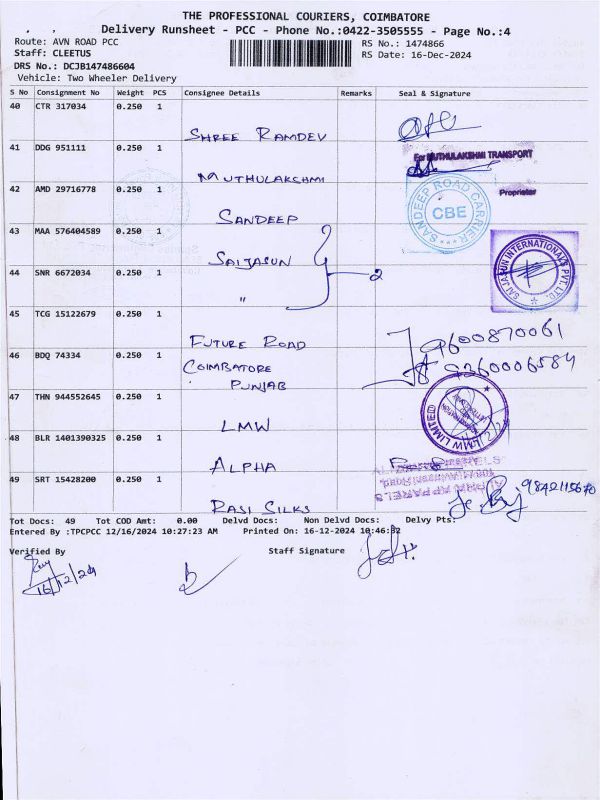 THE PROFESSIONAL COURIERS, COIMBATORE
Delivery Runsheet - PCC - Phone No.:0422-3505555 - Page No.:4
Route: AVN ROAD PCC RS No.: 1474866
Staff: CLEETUS RS Date: 16-Dec-2024
DRS No.: DCJB147486604
Vehicle: Two Wheeler Delivery
S No Consignment No Weight PCS Consignee Details Remarks Seal & Signature
40 CTR 317034 0.250 1
SHREE RAMDEV
41 DDG 951111 0.250 1
For MUTHULAKSHMI TRANSPORT
MUTHULAKSHMI
42 AMD 29716778 0.250 1
Proprietor
SANDEEP ROAD CARRIER
CBE
SANDEEP
43 MAA 576404589 0.250 1
SAIJASUN
SAI JASUN INTERNATIONAL PVT. LTD.
44 SNR 6672034 0.250 1
" 2
45 TCG 15122679 0.250 1
FUTURE ROAD 9600870061
46 BDQ 74334 0.250 1
COIMBATORE 9360006584
PUNJAB
47 THN 944552645 0.250 1
LMW LIMITED
LMW
48 BLR 1401390325 0.250 1
ALPHA
49 SRT 15428200 0.250 1
9842115670
RASI SILKS
Tot Docs: 49 Tot COD Amt: 0.00 Delvd Docs: Non Delvd Docs: Delvy Pts:
Entered By :TPCPCC 12/16/2024 10:27:23 AM Printed On: 16-12-2024 10:46:32
Verified By Staff Signature
16/12/24